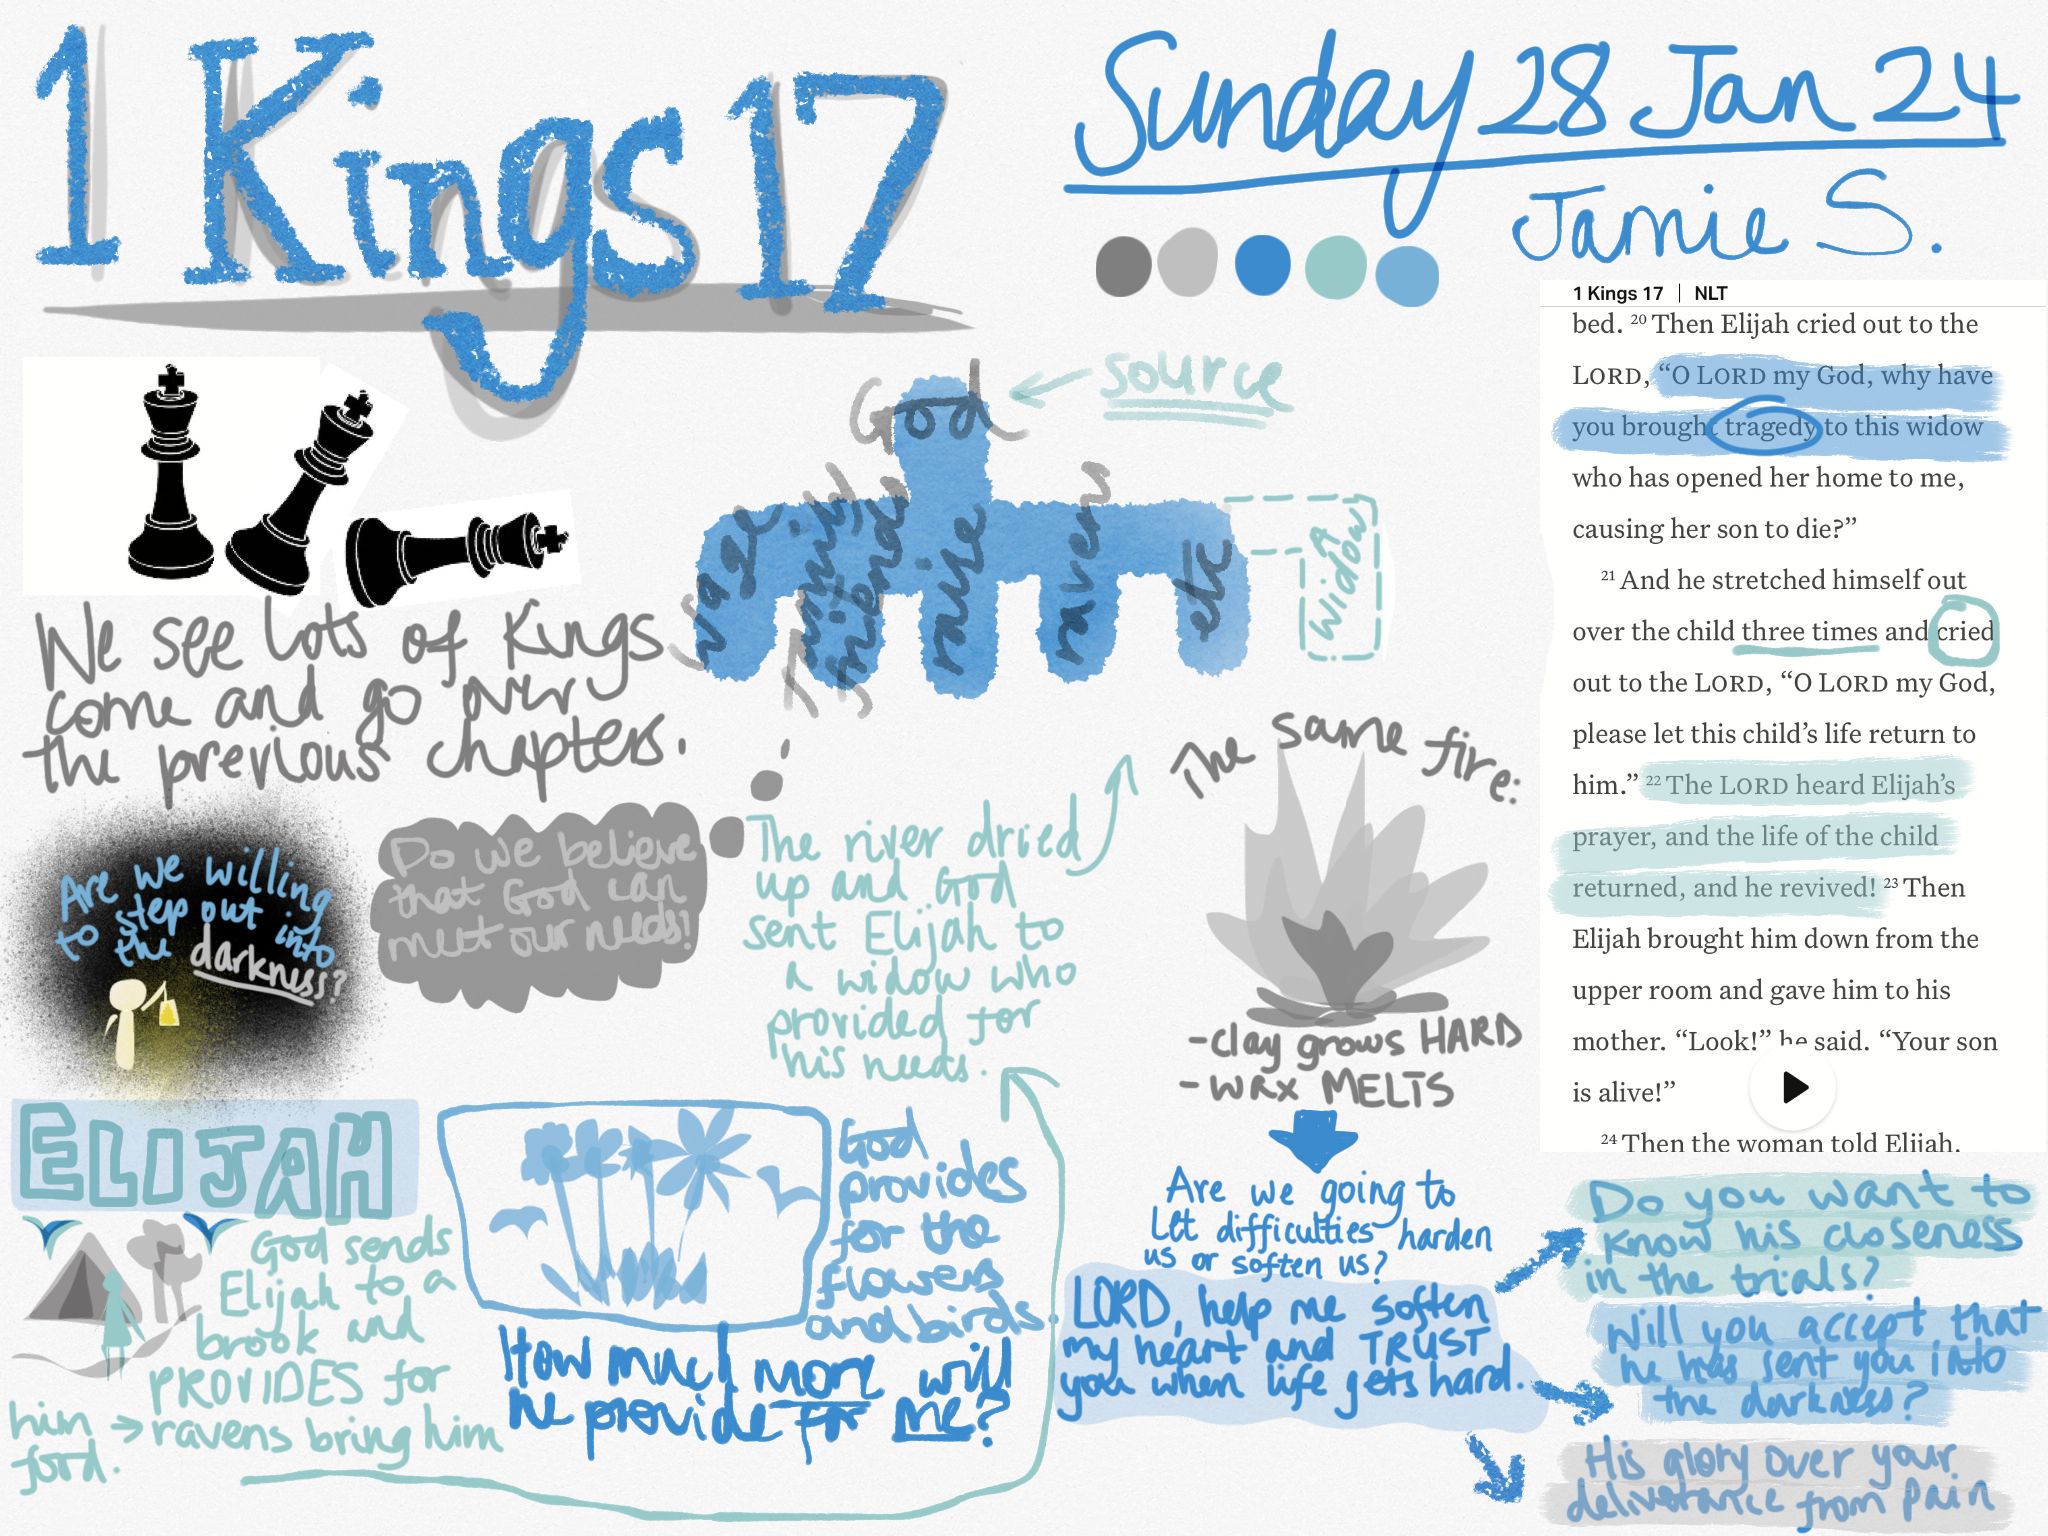 1 Kings 17
Sunday 28 Jan 24
Jamie S.
We see lots of Kings
come and go over
the previous chapters.
God
source
wage
family
friends
nurse
raven
etc
Widow
Are we willing
to step out into
the darkness?
Do we believe
that God can
meet our needs?
The river dried
up and God
sent Elijah to
a widow who
provided for
his needs.
ELIJAH
God sends
Elijah to a
brook and
PROVIDES for
ravens bring him
him
food.
God
provides
for the
flowers
and birds.
How much more will
he provide for me?
The same fire:
-clay grows HARD
-wax MELTS
Are we going to
let difficulties harden
us or soften us?
LORD, help me soften
my heart and TRUST
you when life gets hard.
1 Kings 17 | NLT
bed. 20 Then Elijah cried out to the
LORD, “O LORD my God, why have
you brought tragedy to this widow
who has opened her home to me,
causing her son to die?”
21 And he stretched himself out
over the child three times and cried
out to the LORD, “O LORD my God,
please let this child’s life return to
him.” 22 The LORD heard Elijah’s
prayer, and the life of the child
returned, and he revived! 23 Then
Elijah brought him down from the
upper room and gave him to his
mother. “Look!” he said. “Your son
is alive!”
24 Then the woman told Elijah,
Do you want to
know his closeness
in the trials?
Will you accept that
he has sent you into
the darkness?
His glory over your
deliverance from pain